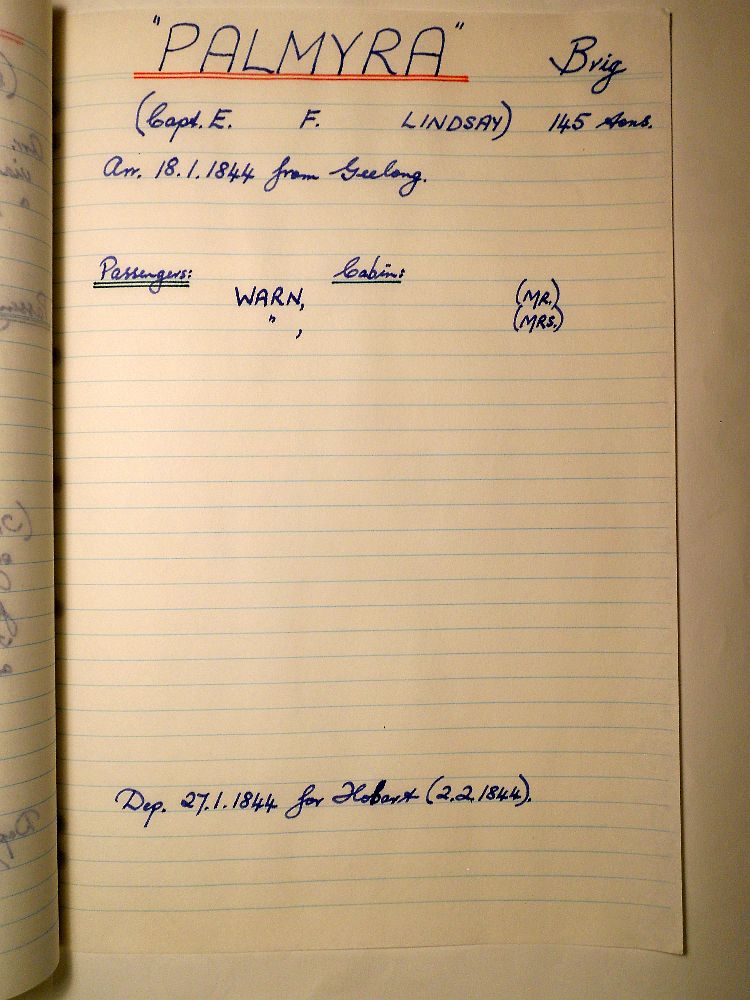 "PALMYRA" Brig
(Capt. E. F. LINDSAY) 145 tons.
Arr. 18.1.1844 from Geelong.
Passengers: Cabin:
WARN, (MR.)
" , (MRS.)
Dep. 27.1.1844 for Hobart (2.2.1844).